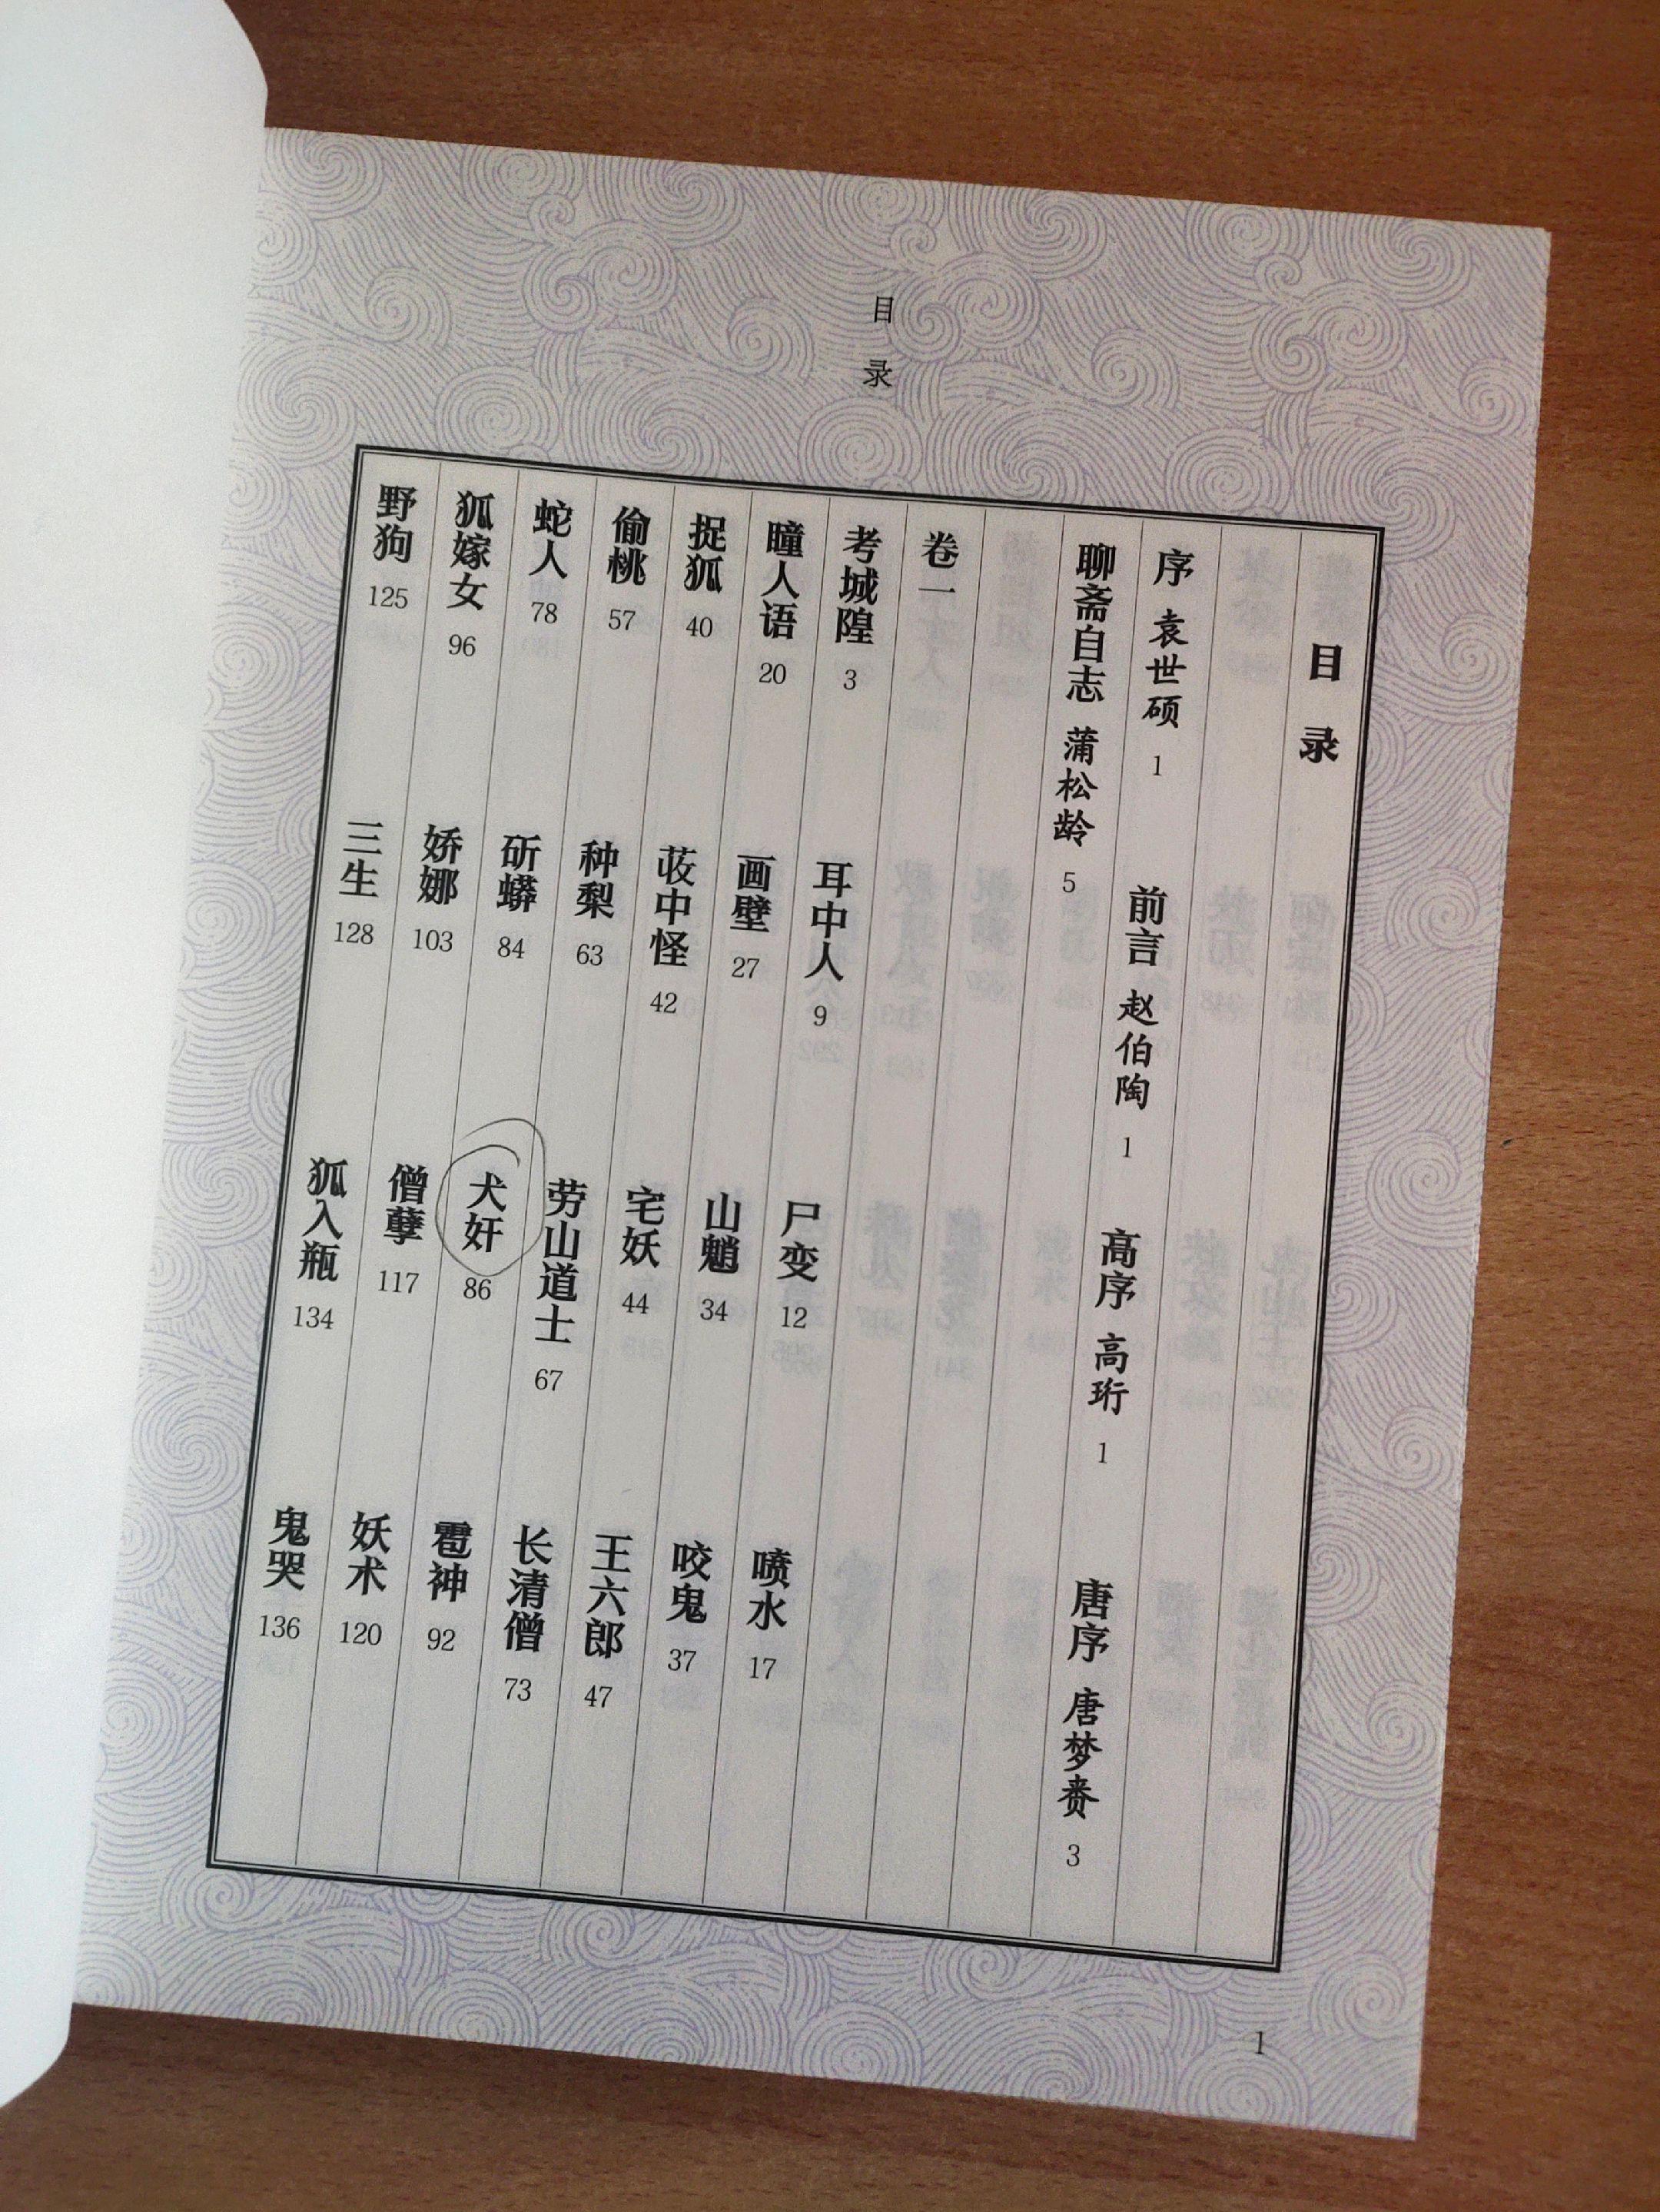 目录
目录
序 袁世硕 1 前言 赵伯陶 1 高序 高珩 1 唐序 唐梦赉 3
聊斋自志 蒲松龄 5
卷一
考城隍 3 耳中人 9 尸变 12 喷水 17
瞳人语 20 画壁 27 山魈 34 咬鬼 37
捉狐 40 荍中怪 42 宅妖 44 王六郎 47
偷桃 57 种梨 63 劳山道士 67 长清僧 73
蛇人 78 斫蟒 84 犬奸 86 雹神 92
狐嫁女 96 娇娜 103 僧孽 117 妖术 120
野狗 125 三生 128 狐入瓶 134 鬼哭 136
1